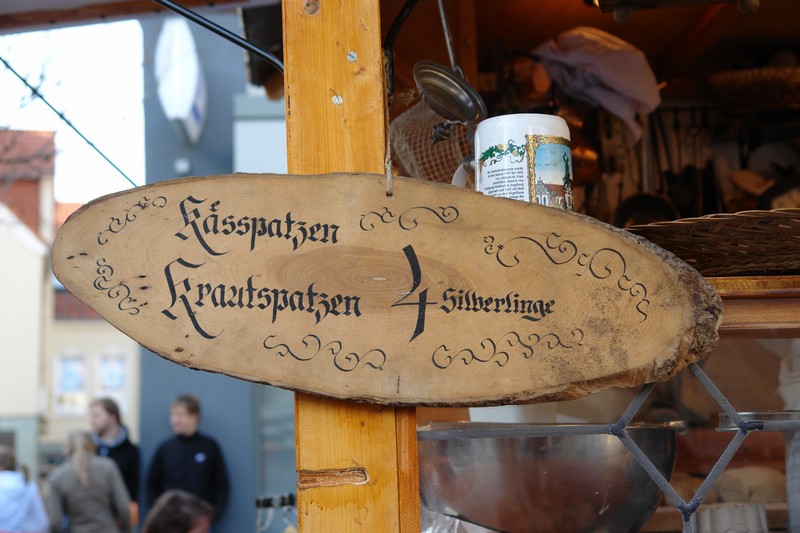 Kässpatzen
Krautspatzen 4 Silberlinge